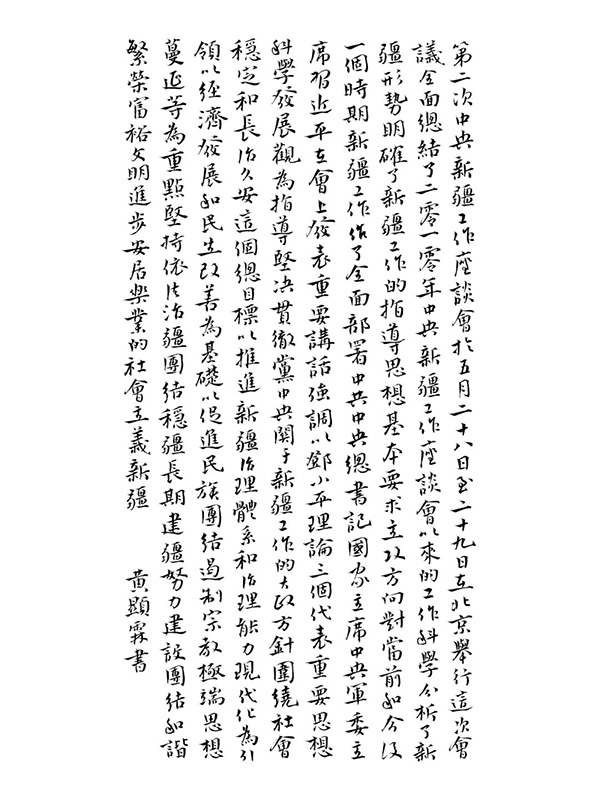 第二次中央新疆工作座談會於五月二十八日至二十九日在北京舉行這次會
議全面總結了二零一零年中央新疆工作座談會以來的工作科學分析了新
疆形勢明確了新疆工作的指導思想基本要求主攻方向對當前和今後
一個時期新疆工作作了全面部署中共中央總書記國家主席中央軍委主
席習近平在會上發表重要講話強調以鄧小平理論三個代表重要思想
科學發展觀為指導堅決貫徹黨中央關于新疆工作的大政方針圍繞社會
穩定和長治久安這個總目標以推進新疆治理體系和治理能力現代化為引
領以經濟發展和民生改善為基礎以促進民族團結遏制宗教極端思想
蔓延等為重點堅持依法治疆團結穩疆長期建疆努力建設團結和諧
繁榮富裕文明進步安居樂業的社會主義新疆
黃顯霖書